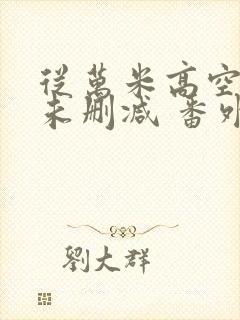 從萬米高空
未刪减 番外
劉大群